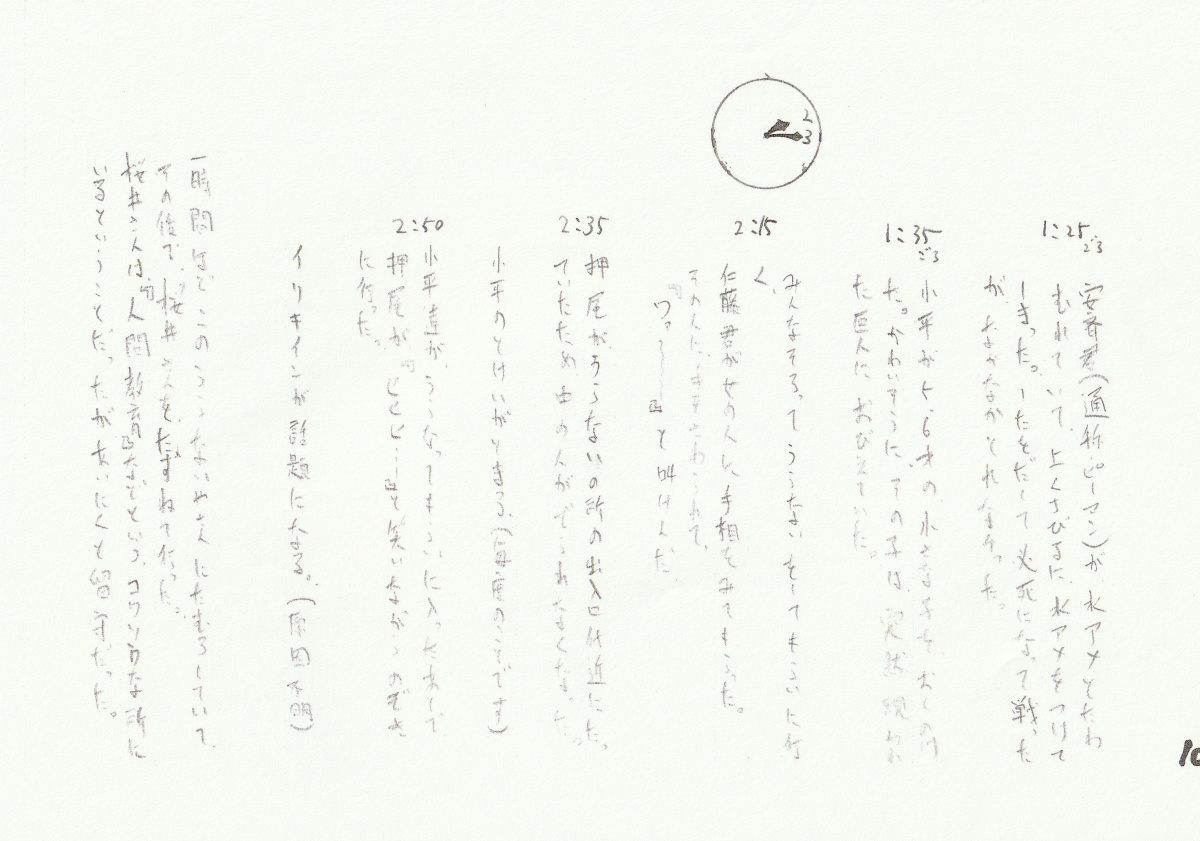 1:25ごろ
安斉君(通称ピーマン)が、水アメとたわ
むれていて、上くちびるに、水アメをつけて
しまった。したをだして必死になって戦った
が、なかなかとれなかった。
1:35ごろ
小平が5、6才の小さな子を、おしのけ
た。かわいそうに、その子は、突然現われ
た巨人に、おびえていた。
2:15
みんなそろってうらないをしてもらいに行
く、
仁藤君が女の人に手相をみてもらった。
その人に、手をさわられて、
『ワァ〜〜〜』と叫けんだ
2:35
押尾が、うらないの所の出入口付近にた
っていたため中の人がでられなくなった。
小平のとけいがとまる、(毎度のことです)
2:50
小平達が、うらなってもらいに入ったあとで
押尾が、『ヒヒヒ…』と笑いながらのぞき
に行った。
イリキインが話題になる。(原因不明)
一時間ほどこのうらないやさんにたむろしていて、
その後で、桜井さんを、たずねて行った。
桜井さんは、『人間教育』などという、コワソウな所に
いるということだったがあいにくと留守だった。
2
3
10